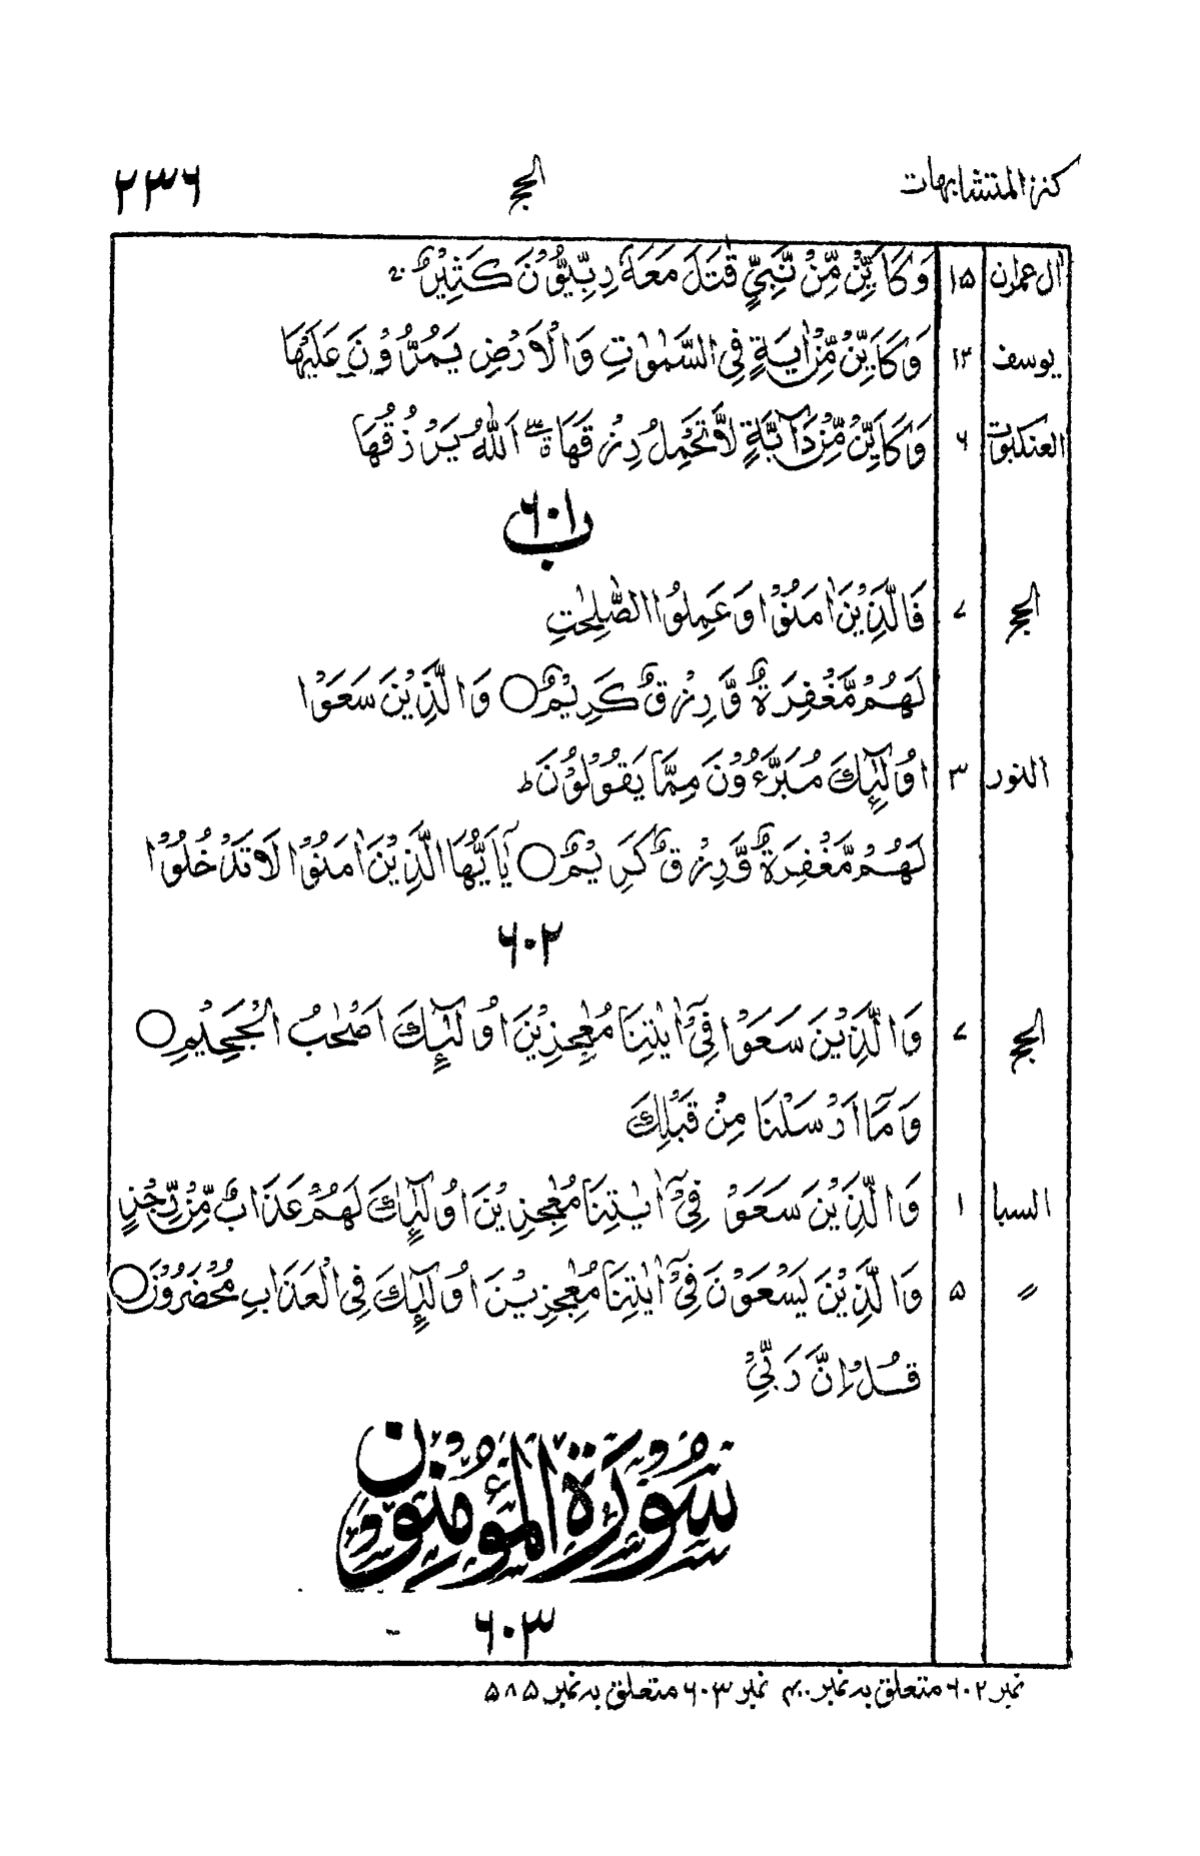 كنز المتشابهات الحج ٢٣٦
اٰل عمرٰن ١۵ وَكَاَيِّنْ مِّنْ نَّبِيٍّ قٰتَلَ مَعَهٗ رِبِّيُّوْنَ كَثِيْرٌ
يوسف ١٢ وَكَاَيِّنْ مِّنْ اٰيَةٍ فِى السَّمٰوٰتِ وَالْاَرْضِ يَمُرُّوْنَ عَلَيْهَا
العنكبوت ٦ وَكَاَيِّنْ مِّنْ دَآبَّةٍ لَّا تَحْمِلُ رِزْقَهَا ۖ اَللّٰهُ يَرْزُقُهَا
٦٠١ ب
الحج ٧ فَالَّذِيْنَ اٰمَنُوْا وَعَمِلُوا الصّٰلِحٰتِ
لَهُمْ مَّغْفِرَةٌ وَّرِزْقٌ كَرِيْمٌ ○ وَالَّذِيْنَ سَعَوْا
النور ٣ اُولٰٓئِكَ مُبَرَّءُوْنَ مِمَّا يَقُوْلُوْنَ ط
لَهُمْ مَّغْفِرَةٌ وَّرِزْقٌ كَرِيْمٌ ○ يٰٓاَيُّهَا الَّذِيْنَ اٰمَنُوْا لَا تَدْخُلُوْا
٦٠٢
الحج ٧ وَالَّذِيْنَ سَعَوْا فِيْٓ اٰيٰتِنَا مُعٰجِزِيْنَ اُولٰٓئِكَ اَصْحٰبُ الْجَحِيْمِ ○
وَمَآ اَرْسَلْنَا مِنْ قَبْلِكَ
السبا ١ وَالَّذِيْنَ سَعَوْ فِيْٓ اٰيٰتِنَا مُعٰجِزِيْنَ اُولٰٓئِكَ لَهُمْ عَذَابٌ مِّنْ رِّجْزٍ
〃 ۵ وَالَّذِيْنَ يَسْعَوْنَ فِيْٓ اٰيٰتِنَا مُعٰجِزِيْنَ اُولٰٓئِكَ فِى الْعَذَابِ مُحْضَرُوْنَ ○
قُلْ اِنَّ رَبِّيْ
سُوْرَةُ الْمُؤْمِنُوْن
٦٠٣
نمبر ٦٠٢ متعلق بہ نمبر نمبر ٦٠٣ متعلق بہ نمبر ۵٨۵